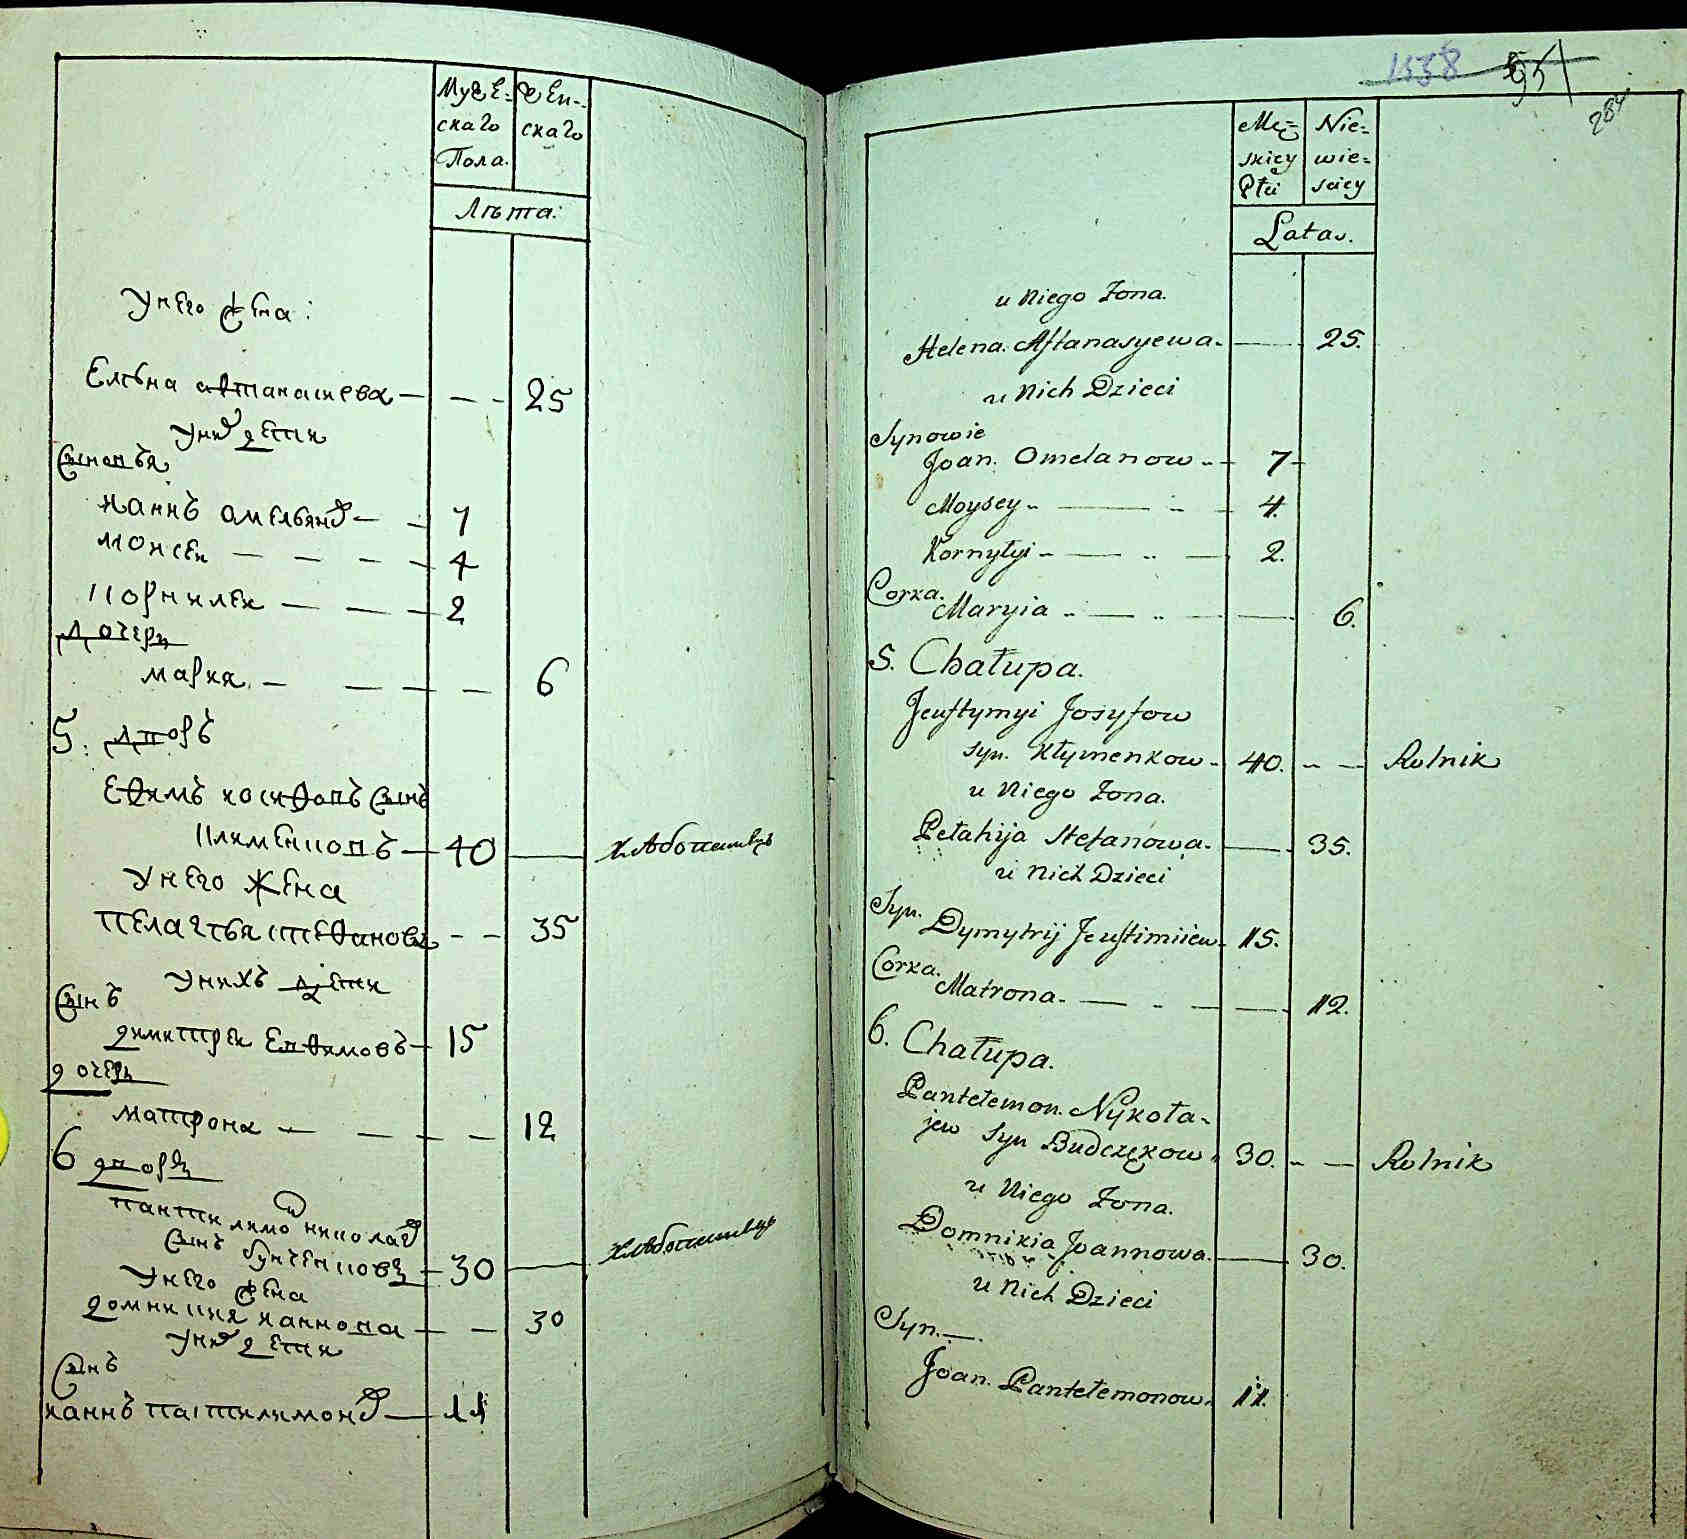 Муже= Жен-
скаго скаго
Пола.
Лѣта:
У него жена:
Елѣна Автанасиева — — - 25
У них дѣти
Сыновья
Ианнъ Омельянов — - 7
Моисеи — — — - 4
Корнилеи — — — 2
Дочери
Мария. — — — — 6
5. Дворъ
Ефимъ Иосифовъ сынъ
Клименковъ — 40 — Хлѣбопашецъ
У него жена
Пелагѣя Стефанова - - 35
У нихъ дѣти
Сынъ
Димитреи Евфимовъ — 15
Дочерь
Матрона — — — — 12
6 Дворъ
Пантилимон Николаев
сынъ Бунченковъ — 30 — Хлѣбопашецъ
У него жена
Домникия Ианнова — — 30
У них дѣти
Сынъ
Ианнъ Пантилимонов — 11
1538 95
284
Mę= Nie=
skiey wie=
Płci sciey
Lata.
u Niego Żona.
Helena. Aftanasyewa. — 25.
u Nich Dzieci
Synowie
Joan. Omelanow - - 7 -
Moysey - — - - 4.
Kornyłyi - — - — 2.
Corka.
Maryia - — - — — 6.
5. Chałupa.
Jeuftymyi Josyfow
syn. Kłymenkow - 40. - — Rolnik
u Niego Żona.
Pełahija Stefanowa. — 35.
u Nich Dzieci
Syn.
Dymytrij Jeuftimiiew - 15.
Corka.
Matrona. — - — — 12.
6. Chałupa.
Pantełemon. Nykoła-
jew syn Budczękow - 30. - — Rolnik
u Niego Żona.
Domnikia Joannowa. — 30.
u Nich Dzieci
Syn. —.
Joan. Pantełemonow. 11.